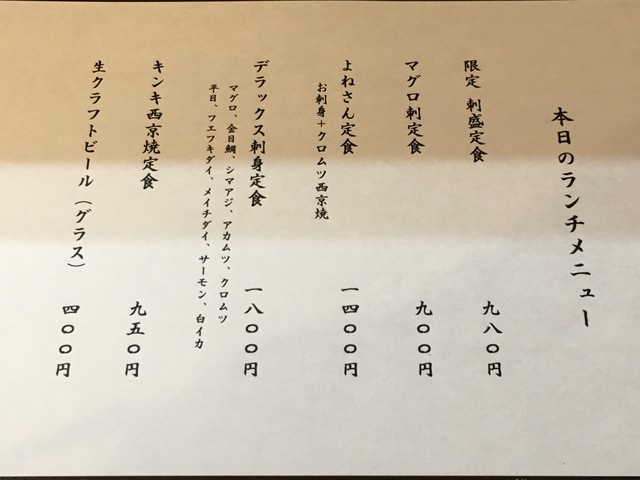 本日のランチメニュー
限定 刺盛定食 九八〇円
マグロ刺定食 九〇〇円
よねさん定食 一四〇〇円
お刺身＋クロムツ西京焼
デラックス刺身定食 一八〇〇円
マグロ、金目鯛、シマアジ、アカムツ、クロムツ
平目、フエフキダイ、メイチダイ、サーモン、白イカ
キンキ西京焼定食 九五〇円
生クラフトビール（グラス） 四〇〇円